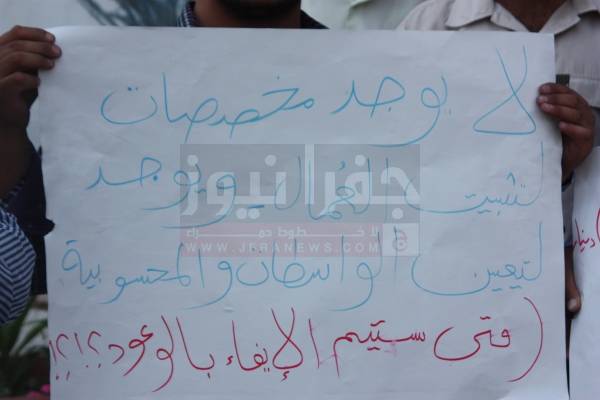 لا يوجد مخصصات
لتثبيت العُمال ويوجد
لتعين الواسطات والمحسوبية
(متى سيتم الإيفاء بالوعود؟!؟!
جفرا نيوز
لا خـطـوط حمـراء
WWW.JFRANEWS.COM.JO
دينار